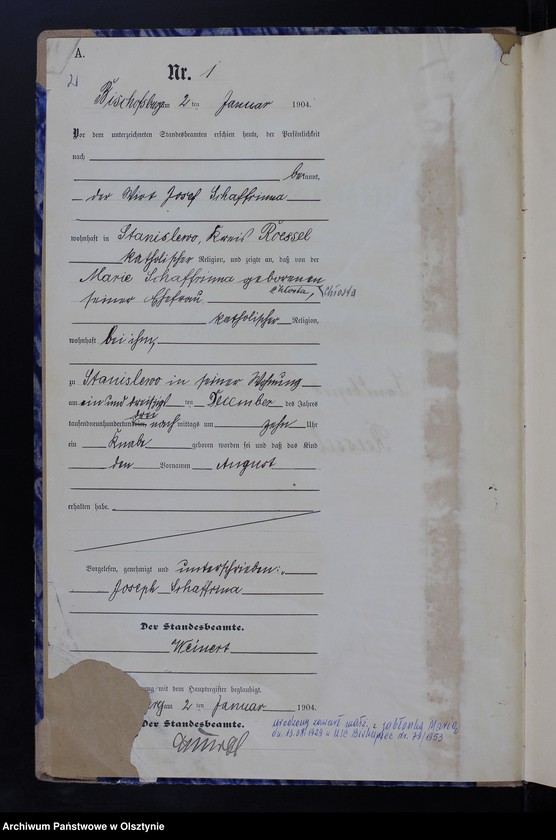 A.
21
Nr. 1
Bischofsburg am 2 ten Januar 1904.
Vor dem unterzeichneten Standesbeamten erschien heute, der Persönlichkeit
nach
bekannt,
der Wirt Josef Schaffrinna
wohnhaft in Stanislewo, Kreis Roessel
katholischer Religion, und zeigte an, daß von der
Marie Schaffrinna geborenen
Chlosta, Chłosta
seiner Ehefrau
katholischer Religion,
wohnhaft bei ihm,
zu Stanislewo in seiner Wohnung
am ein und dreißigsten December des Jahres
tausendneunhundert drei nachmittags um zehn Uhr
ein Knabe geboren worden sei und daß das Kind
den Vornamen August
erhalten habe.
Vorgelesen, genehmigt und unterschrieben:
Joseph Schaffrina
Der Standesbeamte.
Weinert
mit dem Hauptregister beglaubigt.
burg am 2 ten Januar 1904.
Der Standesbeamte.
urodzony zawarł małż. z Jabłonką Marią
USC Biskupiec nr. 79/1953
Archiwum Państwowe w Olsztynie